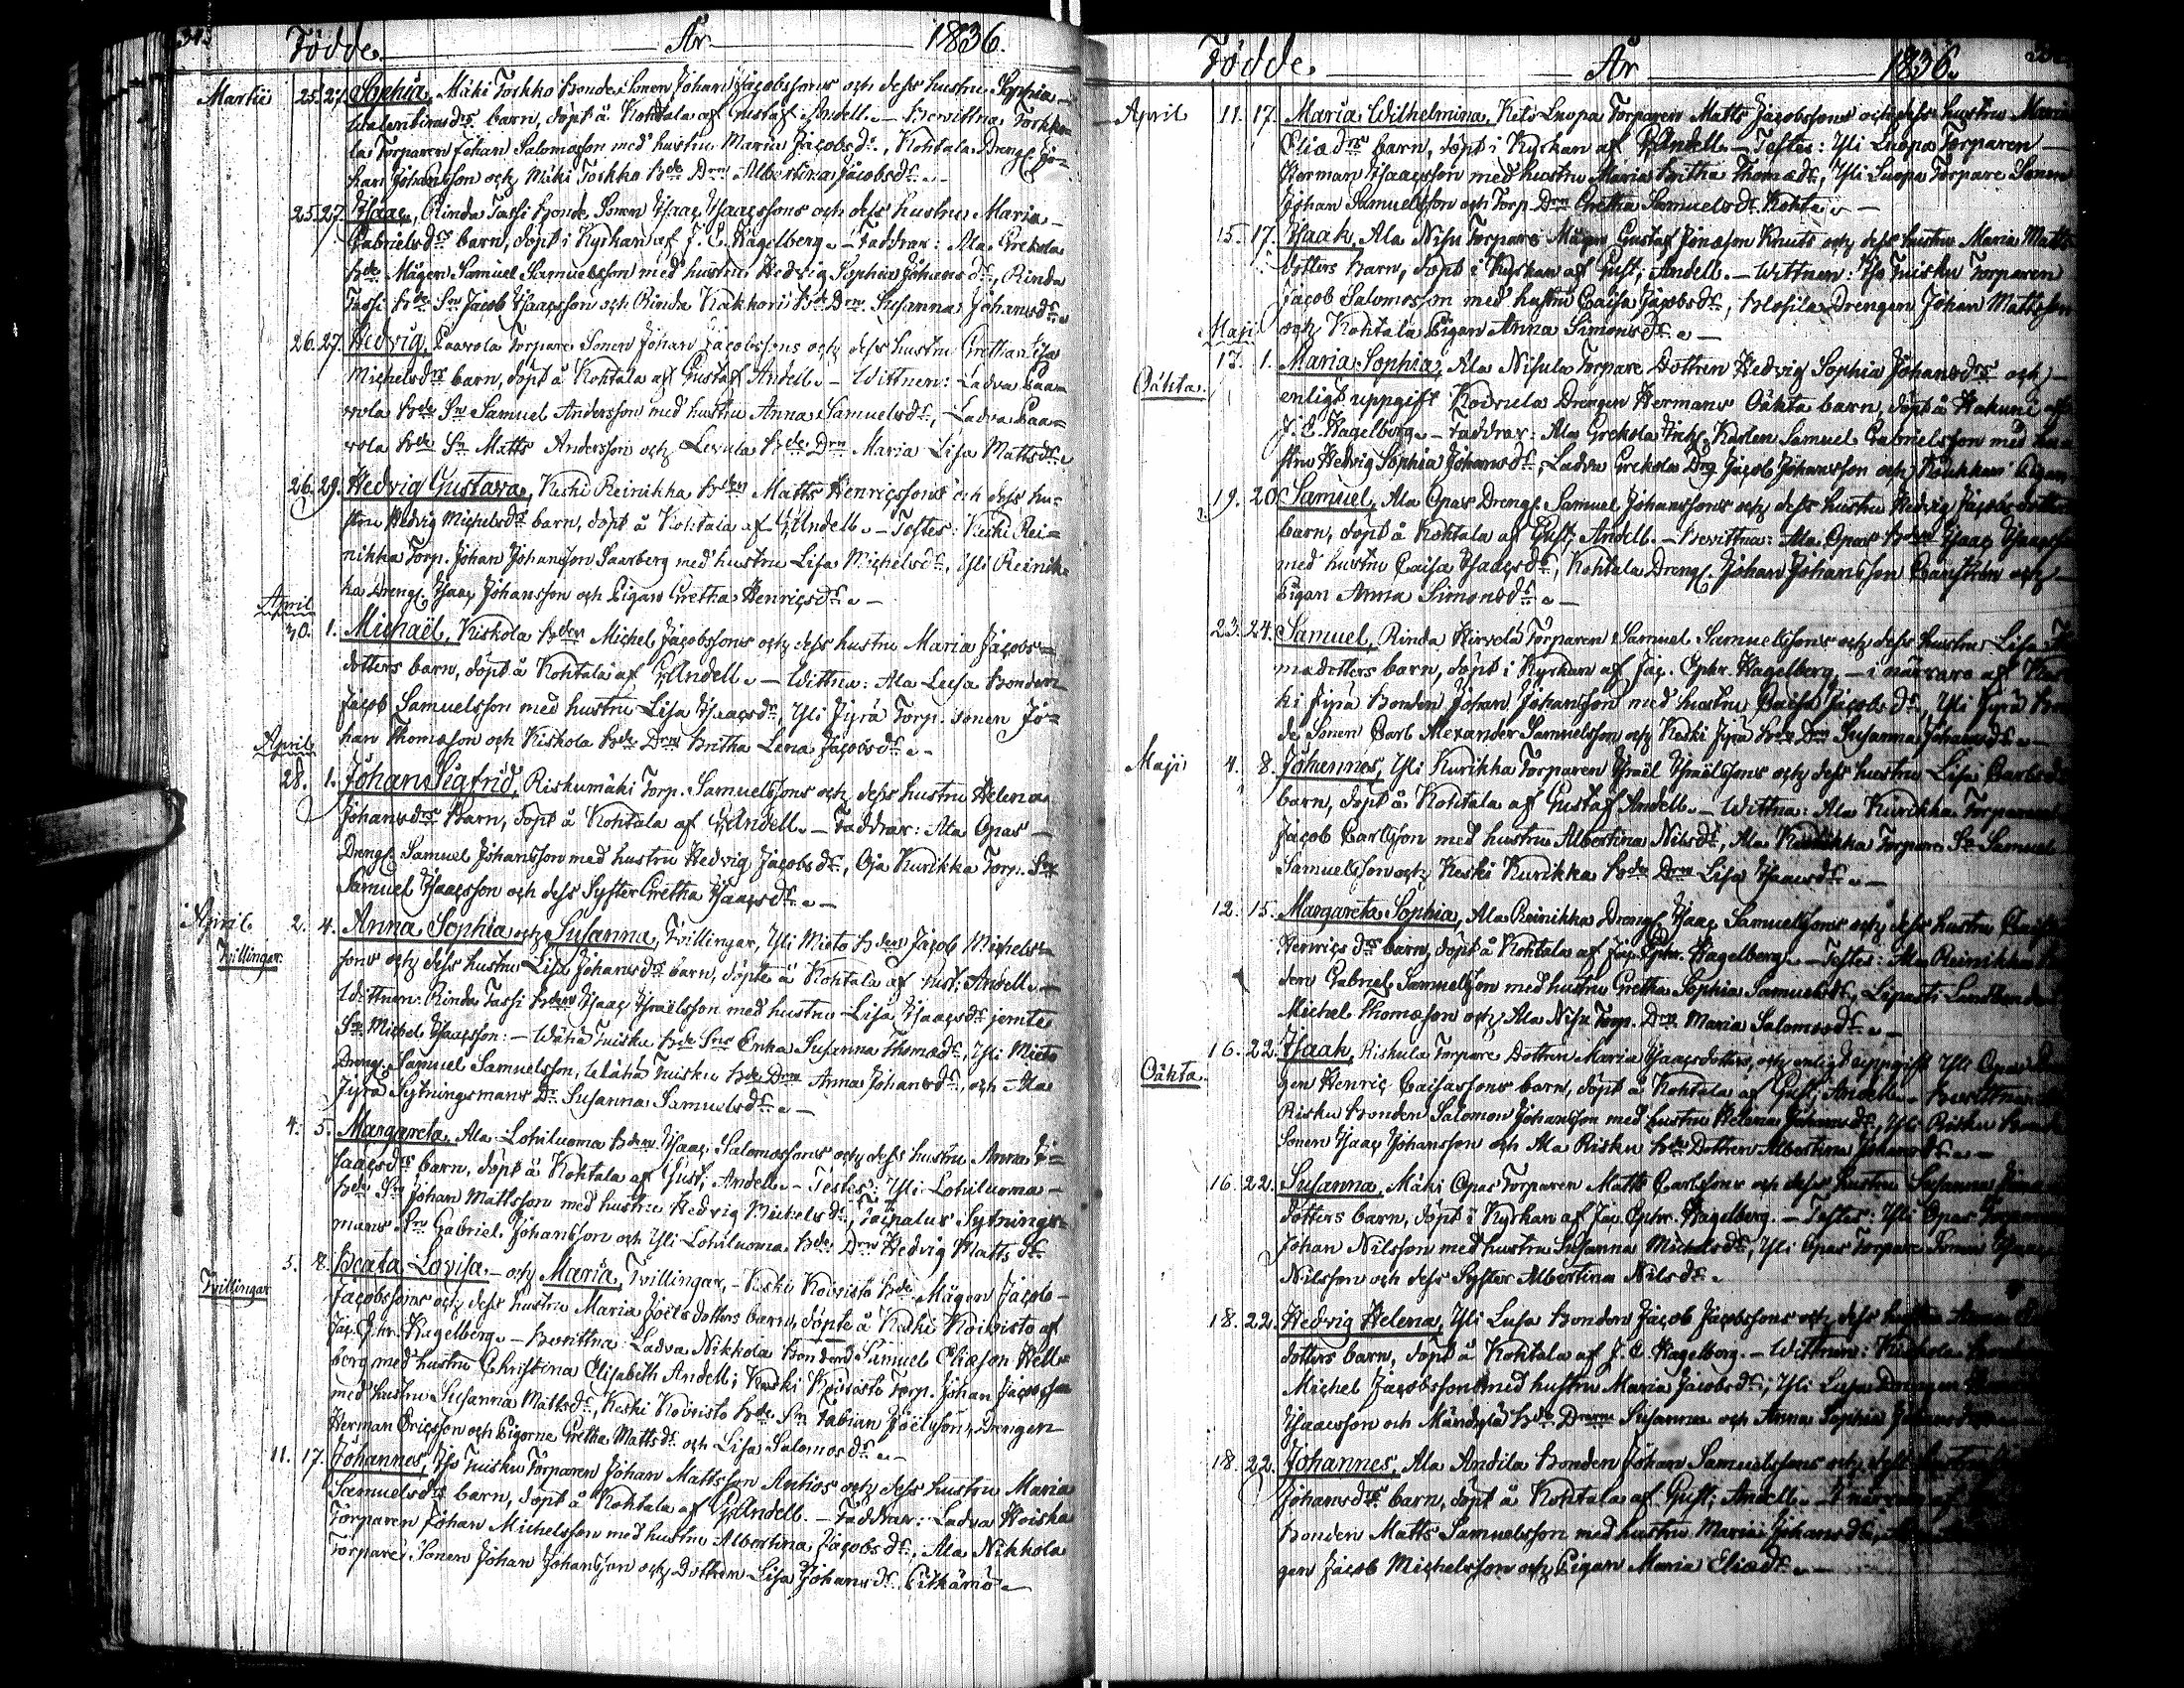 Födde. År 1836.
Martii 25. 27. Sophia, Mäki Torkko Bonde Sonen Johan Jacobssons och dess hustru Sophia
Walentinsdrs barn, döpt å Kohtala af Gustaf Andell. - Bevittna: Torkko
la Torparen Johan Salomosson med hustru Maria Jacobsdr, Kohtala Dreng. Jo=
han Johansson och Mäki Torkko Bde Drn Albertina Jacobsdr. -
25. 27. Isaac, Rinda Jassi Bonde Sonen Isaac Isaacssons och dess hustru Maria
Gabrielsdrs barn, döpt i Kyrkan af J. E. Hagelberg. - Faddrar: Ala Grekola
Bde Mågen Samuel Samuelsson med hustru Hedvig Sophia Johansdr, Rinda
Jassi Bde Sn Jacob Isaacsson och Rinda Kakkori Bde Drn Susanna Johansdr.
26. 27. Hedvig, Paavola Torpare Sonen Johan Jacobssons och dess hustru Gretha Lisa
Michelsdrs barn, döpt å Kohtala af Gustaf Andell. - Wittnen: Ladva Paa=
vola Bde Sn Samuel Andersson med hustru Anna Samuelsdr, Ladva Paa=
vola Bde Sn Matts Andersson och Levula Bde Drn Maria Lisa Mattsdr.
26. 29. Hedvig Gustava, Keski Reinikka Bden Matts Henricssons och dess hu=
stru Hedvig Michelsdrs barn, döpt å Kohtala af G. Andell. - Testes: Keski Rei=
nikka Torp. Johan Johansson Saarberg med hustru Lisa Michelsdr, Yli Reinik
ka Dreng. Isaac Johansson och Pigan Gretha Henricsdr. -
April
30. 1. Michaël, Kiskola Bden Michel Jacobssons och dess hustru Maria Jacobs=
dotters barn, döpt å Kohtala af G. Andell. - Wittna: Ala Lusa Bonden
Jacob Samuelsson med hustru Lisa Isaacsdr, Yli Jyrä Torp. Sonen Jo=
han Thomæson och Kiskola Bde Drn Britha Lena Jacobsdr. -
April
28. 1. Johan Sigfrid, Riskumäki Torp. Samuelssons och dess hustru Helena
Johansdrs Barn, döpt å Kohtala af G. Andell. - Faddrar: Ala Opas
Dreng. Samuel Johansson med hustru Hedvig Jacobsdr, Oja Kurikka Torp. Sn
Samuel Isaacsson och dess Syster Gretha Isaacsdr. -
April 2. 4. Anna Sophia och Susanna, Tvillingar, Yli Mieto Bden Jacob Michels=
Tvillingar.
sons och dess hustru Lisa Johansdrs barn, döpte å Kohtala af Gust. Andell. -
Wittnen: Rinda Jassi Bden Isaac Israëlsson med hustru Lisa Isaacsdr jemte
Sn Michel Isaacsson: - Wähä Tuisku Bde Sns Enka Susanna Thomædr, Yli Mieto
Dreng. Samuel Samuelsson, Wähä Tuisku Bde Drn Anna Johansdr, och Ala
Jyrä Sytningsmans Dr Susanna Samuelsdr. -
4. 5. Margareta, Ala Lohiluoma Bden Isaac Salomossons och dess hustru Anna I=
saacsdrs barn, döpt å Kohtala af Gust. Andell. - Testes: Yli Lohiluoma
Bde Sn Johan Mattsson med hustru Hedvig Michelsdr, Taipalus Sytnings=
mans Sn Gabriel Johansson och Yli Lohiluoma Bde Drn Hedvig Mattsdr
5. 8. Beata Lovisa - och Maria, Tvillingar, - Keski Koivisto Bde Mågen Jacob
Tvillingar
Jacobssons och dess hustru Maria Joëlsdotters barn, döpte å Keski Koivisto af
Jac. Ephr. Hagelberg. - Bevittna: Ladva Nikkola Bonden Samuel Eliæson Hell=
berg med hustru Christina Elisabeth Andell; Keski Koivisto Torp. Johan Jacobsson
med hustru Susanna Mattsdr, Keski Koivisto Bde Sn Fabian Joëlsson, Drengen
Herman Ericsson och Pigorne Gretha Mattsdr och Lisa Salomosdr. -
11. 17. Johannes, Iso Tuisku Torparen Johan Mattsson Antios och dess hustru Maria
Samuelsdrs barn, döpt å Kohtala af G. Andell. - Faddrar: Ladva Hoiska
Torparen Johan Michelsson med hustru Albertina Jacobsdr, Ala Nikkola
Torpare Sonen Johan Johansson och Dottren Lisa Johansdr Pitkämö. -
Födde. År 1836.
April 11. 17. Maria Wilhelmina, Luopa Torparen Matts Jacobssons och dess hustru Maria
Eliædrs barn, döpt i Kyrkan af G. Andell. - Testes: Yli Luopa Torparen
Herman Isaacsson med hustru Maria Britha Thomædr, Yli Luopa Torpare Sonen
Johan Samuelsson och Torp. Drn Gretha Samuelsdr Kohta. -
15. 17. Isaak, Ala Nisu Torpare Mågen Gustaf Jonæson Knuts och dess hustru Maria Matts
dotters Barn, döpt i Kyrkan af Gust. Andell. - Wittnen: Iso Tuisku Torparen
Jacob Salomosson med hustru Caisa Jacobsdr, Drengen Johan Mattsson
och Kohtala Pigan Anna Simonsdr. -
Maji
13. 1. Maria Sophia, Ala Nisula Torpare Dottren Hedvig Sophia Johansdrs och
Oäkta.
enligt uppgift Drengen Hermans Oäkta barn, döpt å Hakuni af
J. E. Hagelberg. - Faddrar: Ala Grekola Karlen Samuel Gabrielsson med hu
stru Hedvig Sophia Johansdr, Ladva Grekola Drg Jacob Johansson och Pigan
19. 20. Samuel, Ala Opas Dreng. Samuel Johanssons och dess hustru Hedvig Jacobsdotters
barn, döpt å Kohtala af Gust. Andell. - Bevittna: Ala Opas Bden Isaac Isaacsson
med hustru Caisa Isaacsdr, Kohtala Dreng. Johan Johansson Carlström och
Pigan Anna Simonsdr. -
23. 24. Samuel, Rinda Hirvelä Torparen Samuel Samuelssons och dess hustru Lisa
mædotters barn, döpt i Kyrkan af Jac. Ephr. Hagelberg, - i närvaro af Kes
ki Jyrä Bonden Johan Johansson med hustru Caisa Jacobsdr, Yli Jyrä Bon
de Sonen Carl Alexander Samuelsson och Keski Jyrä Bde Drn Susanna Johansdr. -
Maji 4. 8. Johannes, Yli Kurikka Torparen Israël Israëlssons och dess hustru Lisa Carlsdrs
barn, döpt å Kohtala af Gustaf Andell. - Wittna: Ala Kurikka Torparen
Jacob Carlsson med hustru Albertina Nilsdr, Ala Kurikka Torpare Sn Samuel
Samuelsson och Keski Kurikka Bde Drn Lisa Isaacsdr. -
12. 15. Margareta Sophia, Ala Reinikka Dreng. Isaac Samuelssons och dess hustru Caisa
Henricsdrs barn, döpt å Kohtala af Jac. Ephr. Hagelberg. - Testes: Ala Reinikka
den Gabriel Samuelsson med hustru Gretha Sophia Samuelsdr, Lipasti
Michel Thomæson och Ala Nisu Torp. Drn Maria Salomosdr. -
16. 22. Isaak, Riskula Torpare Dottren Maria Isaacsdotters, och enligt uppgift Yli Opas
Oäkta.
gen Henric Caisassons barn, döpt å Kohtala af Gust. Andell. - Bevittna
Risku Bonden Salomon Johansson med hustru Helena Johansdr, Yli Risku Bonde
Sonen Isaac Johansson och Ala Risku Bde Dottren Albertina Johansdr. -
16. 22. Susanna, Mäki Opas Torparen Matts Carlssons och dess hustru Susanna
dotters barn, döpt i Kyrkan af Jac. Ephr. Hagelberg. - Testes: Yli Opas Torparen
Johan Nilsson med hustru Susanna Michelsdr, Yli Opas Torpare Sonen Isaac
Nilsson och dess Syster Albertina Nilsdr.
18. 22. Hedvig Helena, Yli Lusa Bonden Jacob Jacobssons och dess hustru Anna
dotters barn, döpt å Kohtala af J. E. Hagelberg. - Wittnen: Kiskola Bonden
Michel Jacobsson med hustru Maria Jacobsdr, Yli Lusa Drengen
Isaacsson och Mändylä Bde Susanna och Anna Sophia Johansdr
18. 22. Johannes, Ala Andila Bonden Johan Samuelssons och dess hustru
Johansdrs barn, döpt å Kohtala af Gust. Andell. - I närvaro af
Bonden Matts Samuelsson med hustru Maria Johansdr,
gen Jacob Michelsson och Pigan Maria Eliædr. -